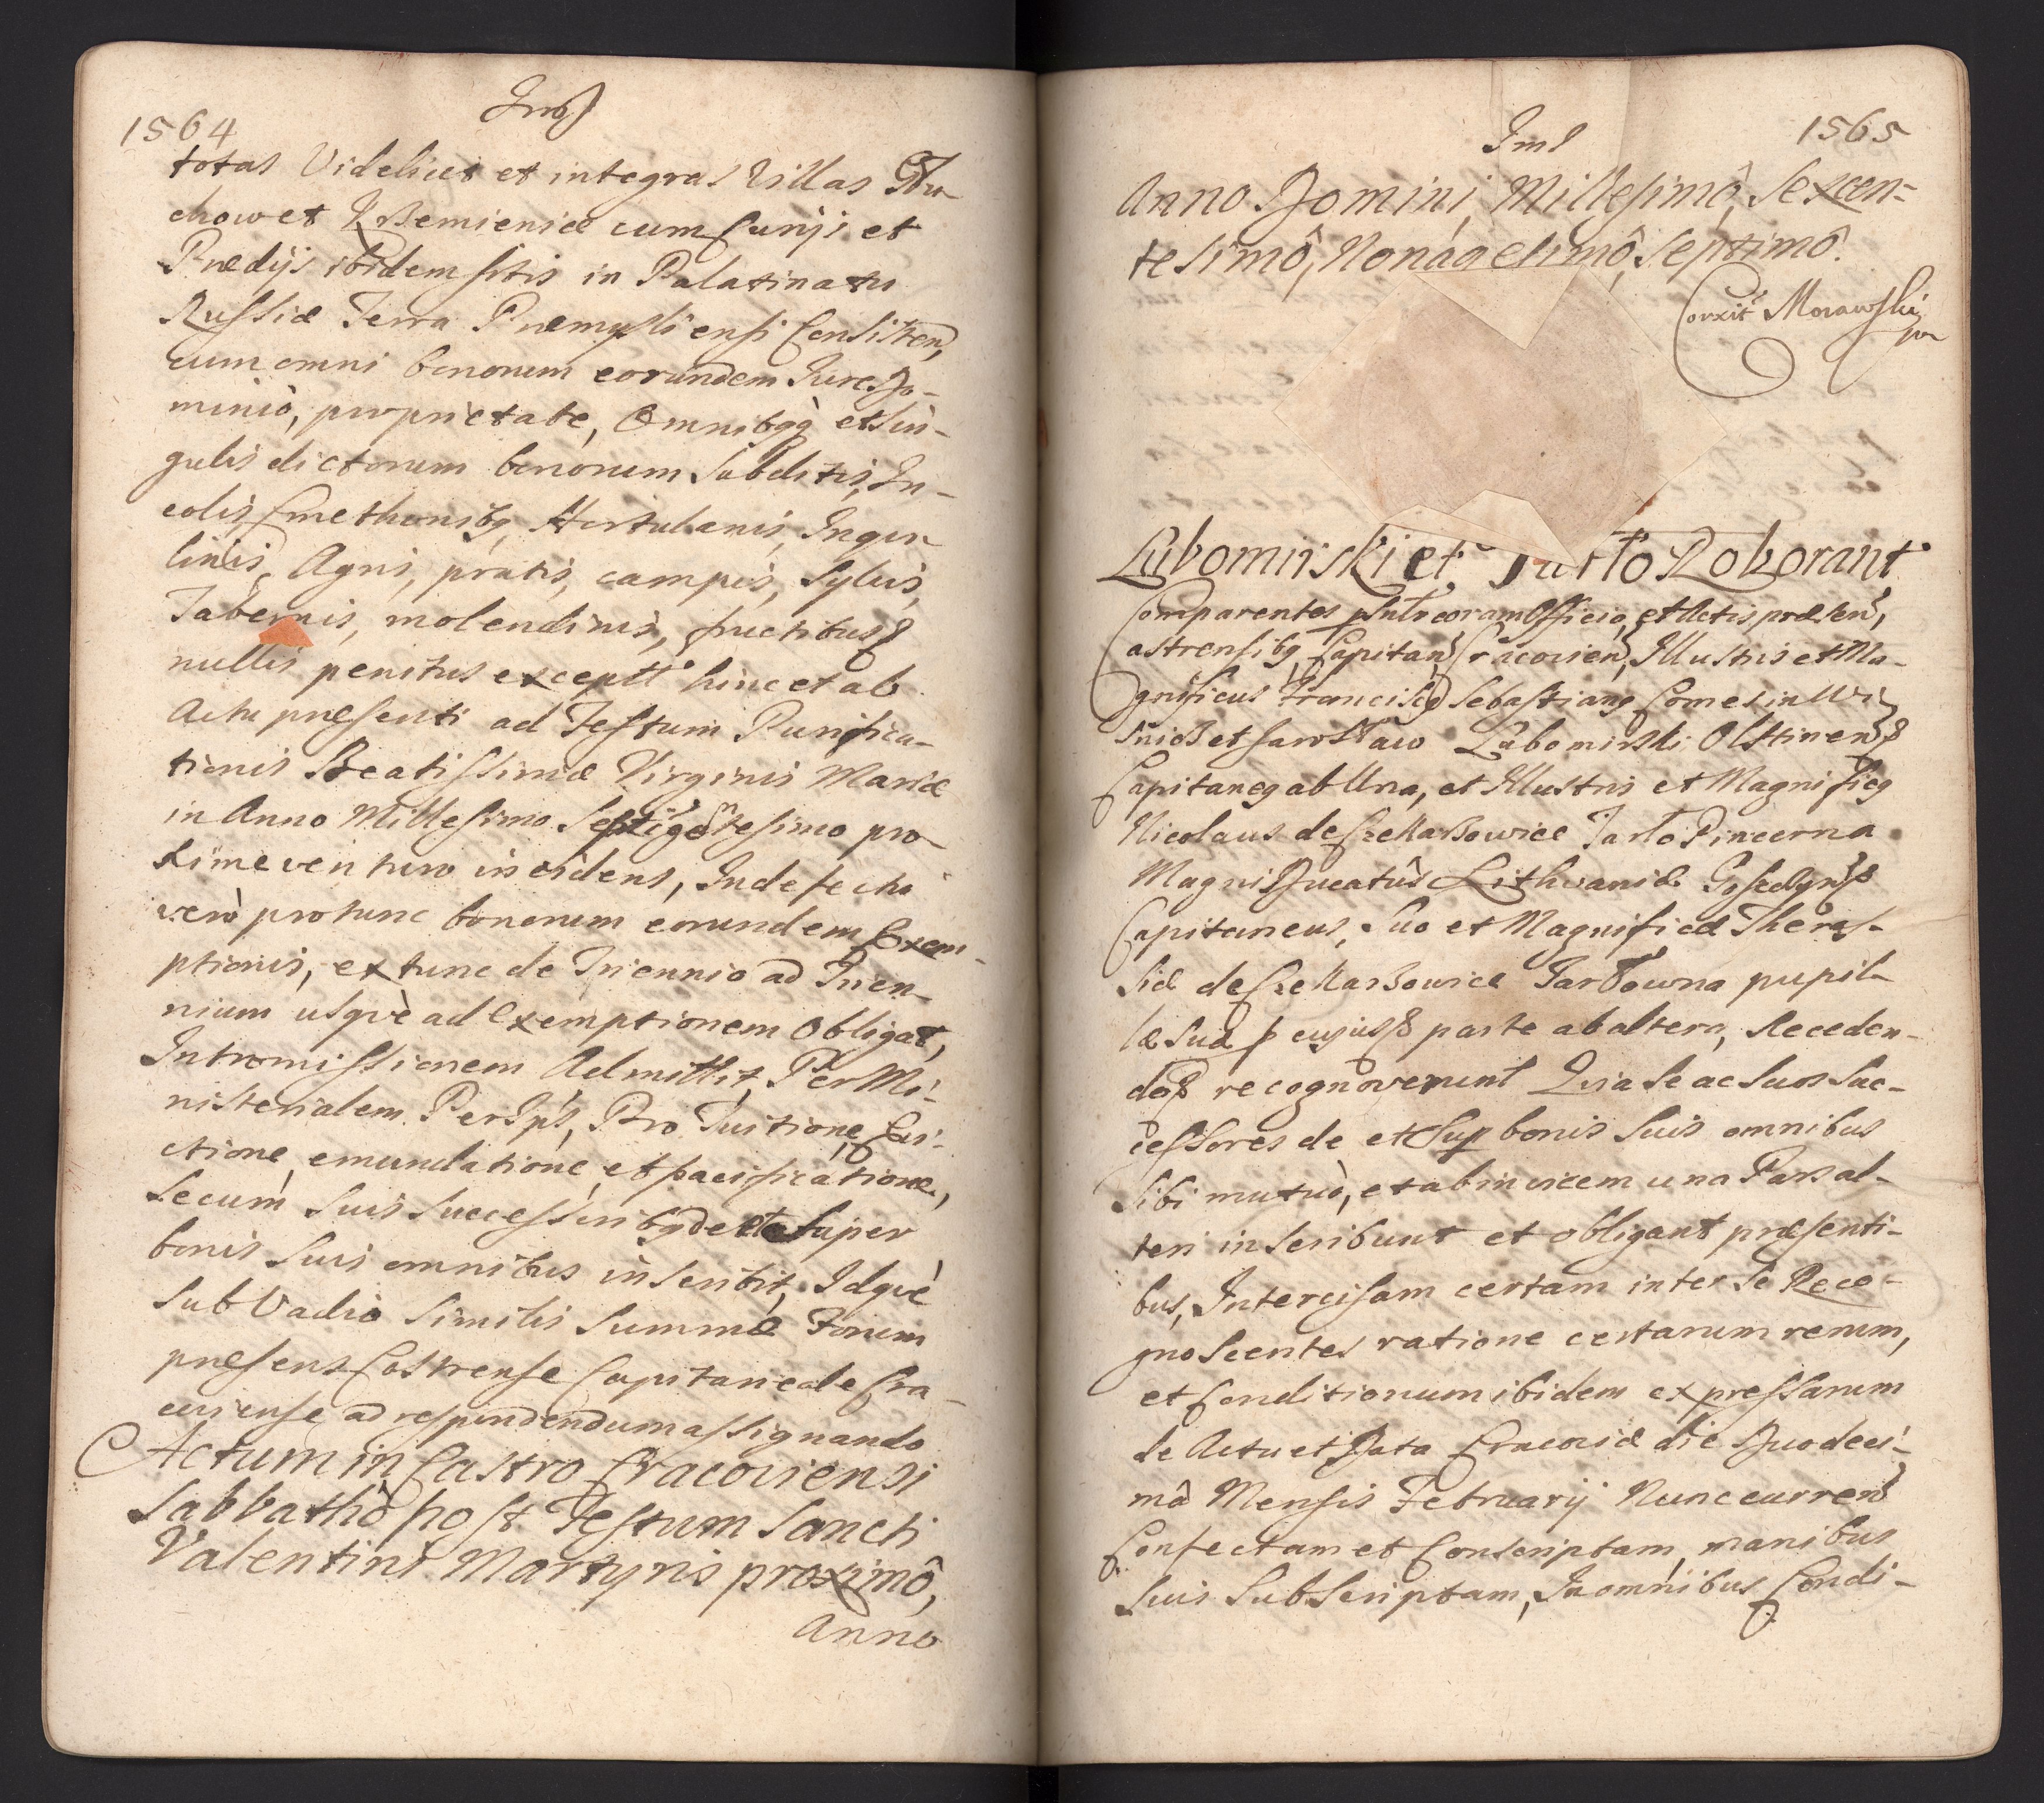 1564
totas Videlicet et integras Villas
chow et Krzemienice cum Curijs et
Prædijs ibidem sitis in Palatinatu
Russiæ Terra Premysliensi Consisten,
cum omni bonorum eorundem Jure Do-
miniô, proprietate, Omnibqꝫ et Sin-
gulis dictorum bonorum Subditis, In-
colis Cmethonibꝫ, Hortulanis, Inqui-
linis, Agris, pratis, campis, Sylvis,
Tabernis, molendinis, fructibus
nullis penitus exceptt hinc et ab
Actu præsenti ad Festum Purifica-
tionis Beatissimæ Virginis Mariæ
in Anno Millesimo Septigentesimo pro-
xime venturo incidens, In defectu
verò pro tunc bonorum eorundem Exem-
ptionis, ex tunc de Triennio ad Trien-
nium usqvè ad exemptionem Obligat,
Intromissionem Admittit, Per Mi-
nisterialem Per Ips, Pro Tuitione Evi-
ctione, emundatione et pacificatione,
Secum Suis Successoribꝫ de et Super
bonis Suis omnibus inscribit, Idqvè
Sub Vadio Similis Summæ Forum
præsens Castrense Capitaneale Cra-
coviense ad respondendum assignando
Actum in Castro Cracoviensi
Sabbathô post Festum Sancti
Valentini Martyris proximô,
Anno
1565
Anno Domini Millesimô, Sexcen-
tesimô, Nonagesimô, Septimô.
Corxit Morawski
Lubomirski et Tarło Roborant
Comparentes psntr coram Officio, et Actis præsen,
Castrensibꝫ Capitan Cracovien, Illustris et Ma-
gnificus Franciscꝫ Sebastianꝫ Comes in Wi
snicz et Jarosław Lubomirski Olsztinen
Capitaneꝫ ab Una, et Illustris et Magnificꝫ
Nicolaus de Czekarzowice Tarło Pincerna
Magni Ducatûs Lithvaniæ
Capitaneus, Suo et Magnificæ Theres-
siæ de Czekarzowice Tarłowna pupil-
læ Suæ cujus parte ab altera, Receden-
do recognoverunt Quia Se ac Suos Suc-
cessores de et Sup bonis Suis omnibus
Sibi mutuò, et ab invicem una Pars al-
teri inscribunt et obligant præsenti-
bus, Intercisam certam inter Se Reco-
gnoscentes ratione certarum rerum,
et Conditionum ibidem expressarum
de Actu et Data Cracoviæ die Duodeci-
mâ Mensis Februarij Nunc curren
Confectam et Conscriptam, manibus
Suis Subscriptam, In omnibus Condi-